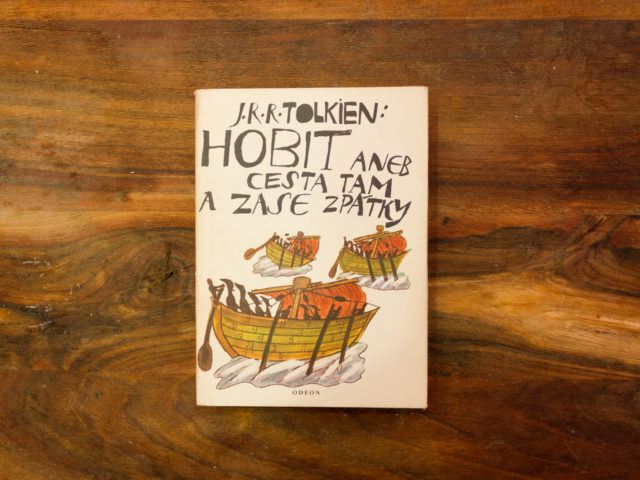 J.R.R.TOLKIEN:
HOBIT ANEB
CESTA TAM
A ZASE ZPÁTKY
ODEON